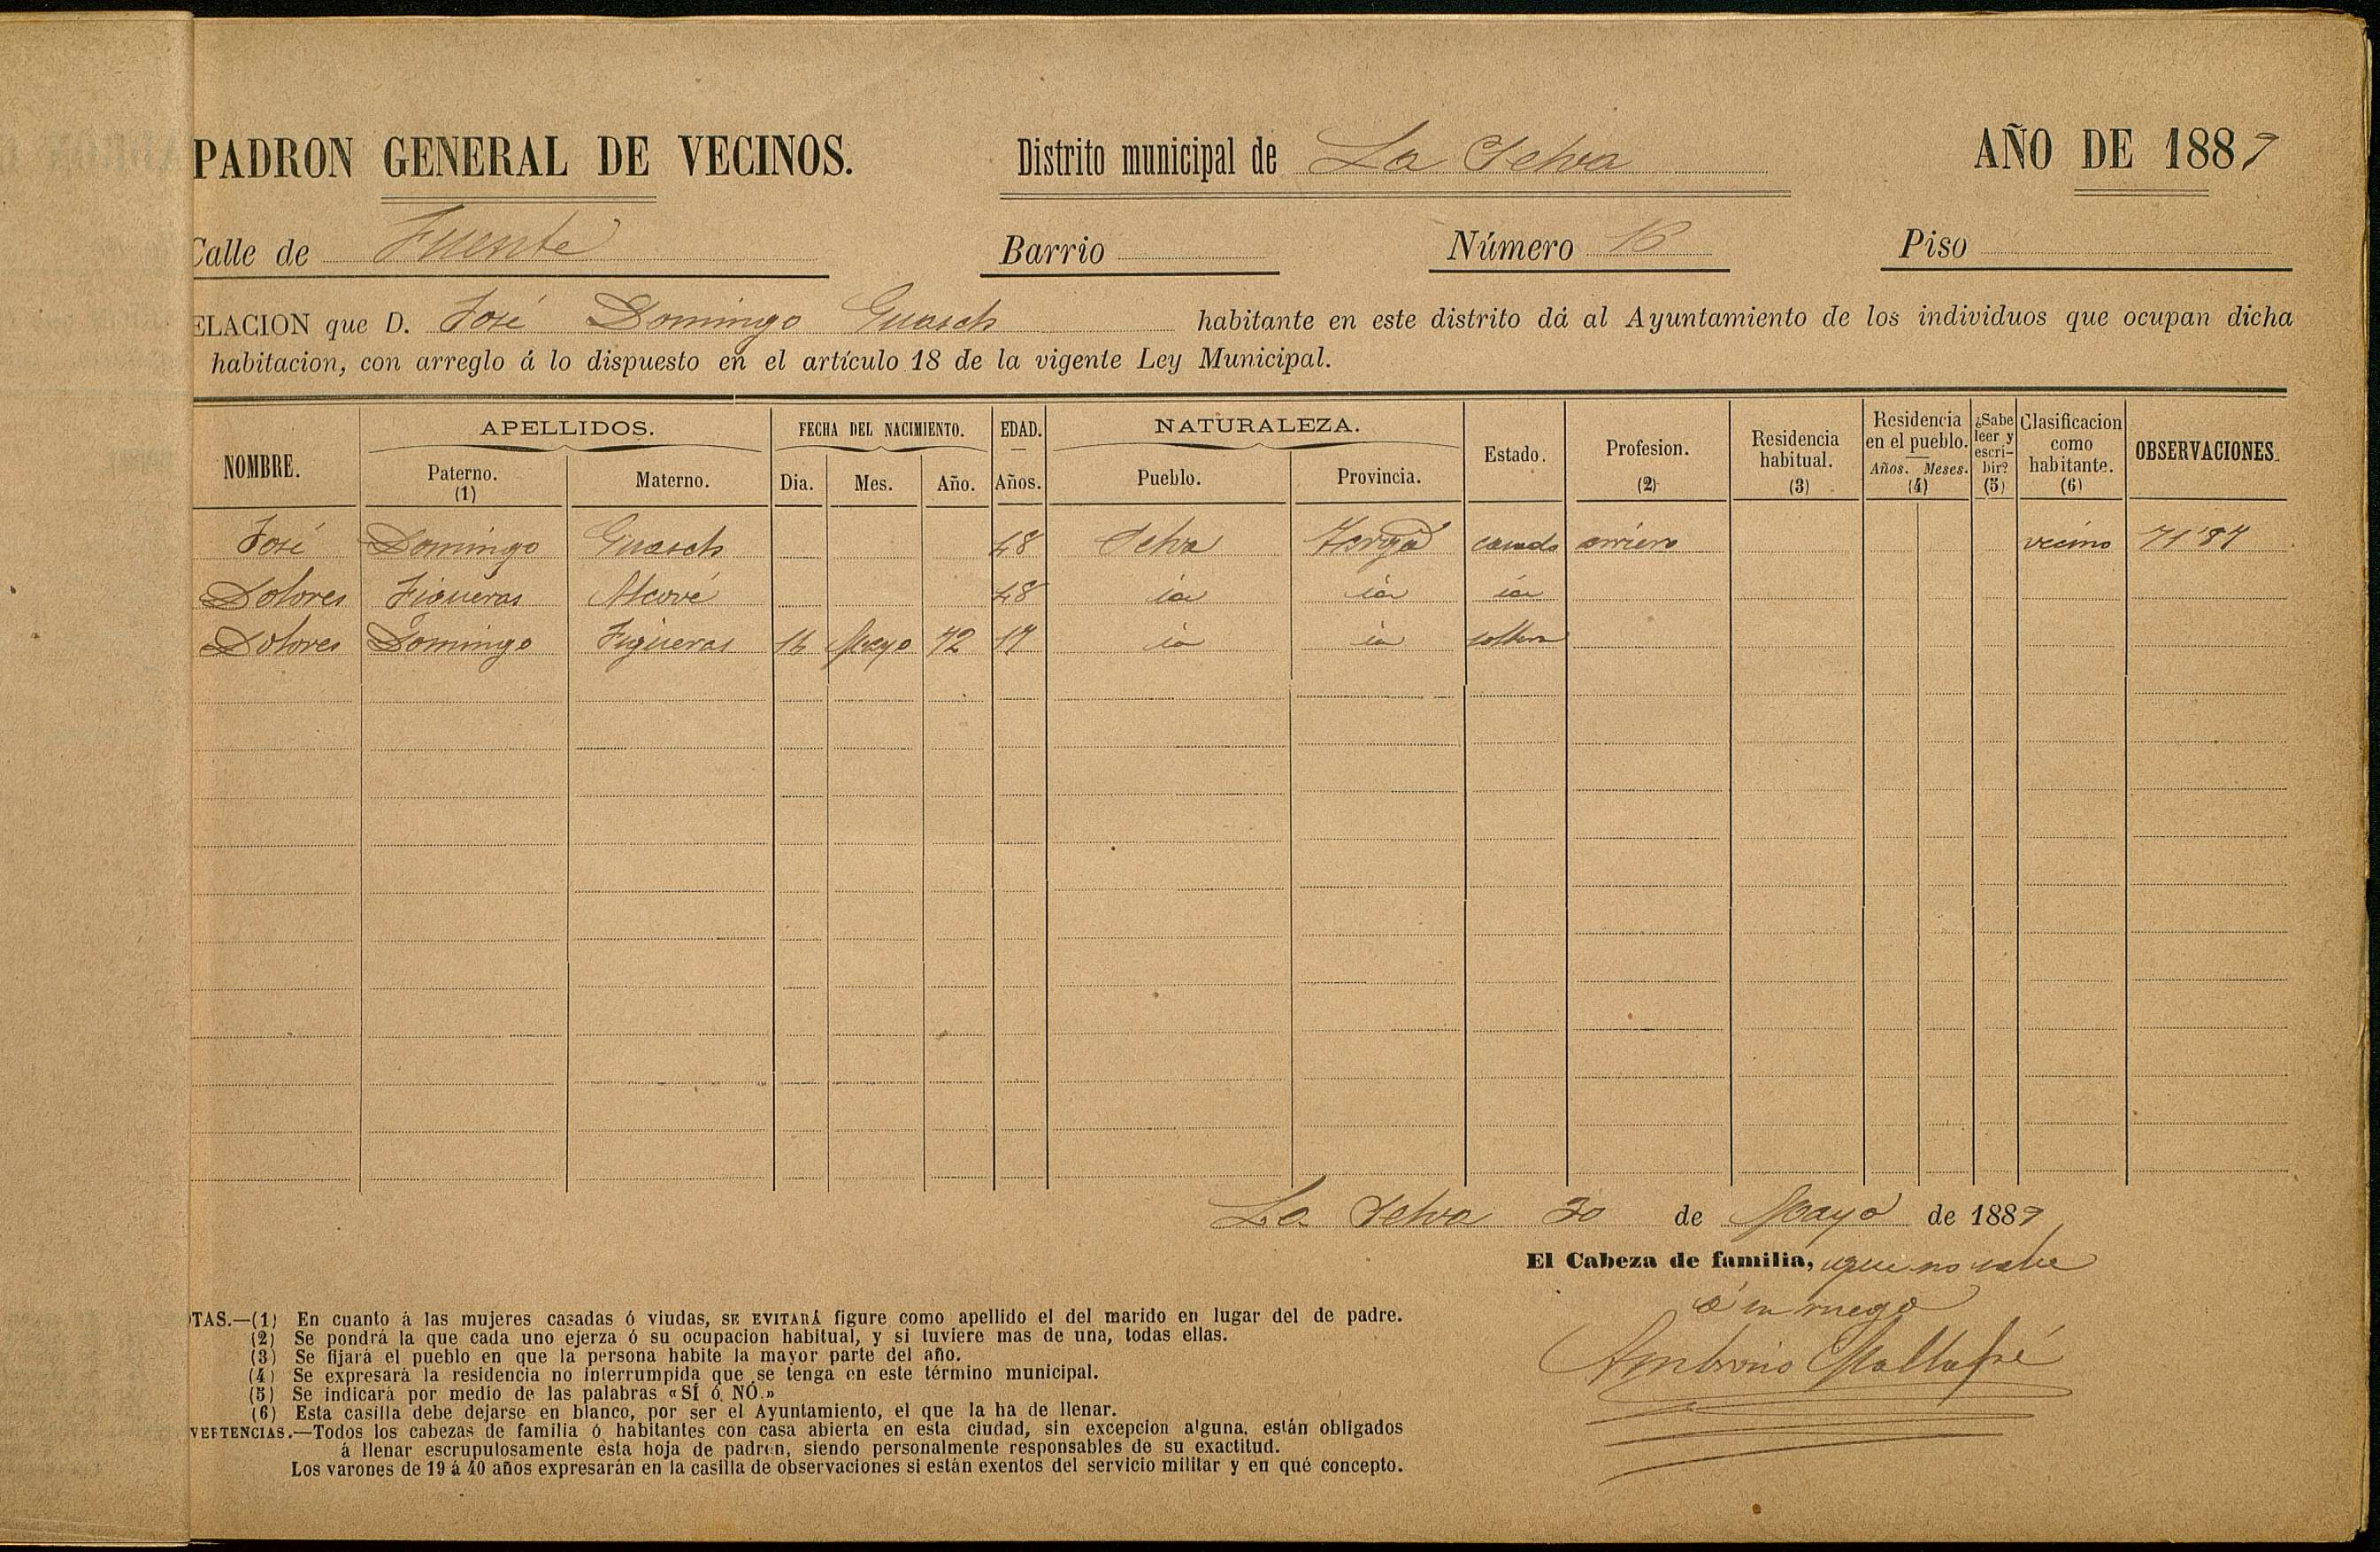 PADRON GENERAL DE VECINOS. Distrito municipal de La Selva AÑO DE 1889
Calle de Fuente Barrio Número 16 Piso
ELACION que D. José Domingo Guasch habitante en este distrito dá al Ayuntamiento de los individuos que ocupan dicha
habitacion, con arreglo á lo dispuesto en el artículo 18 de la vigente Ley Municipal.
NOMBRE. APELLIDOS. Paterno. (1) Materno. FECHA DEL NACIMIENTO. Dia. Mes. Año. EDAD. Años. NATURALEZA. Pueblo. Provincia. Estado. Profesion. (2) Residencia habitual. (3) Residencia en el pueblo. Años. Meses. (4) ¿Sabe leer y escribir? (5) Clasificacion como habitante. (6) OBSERVACIONES.
José Domingo Guasch 48 Selva Targª casado arriero vecino 71'87
Dolores Figueras Alcové 48 id id id
Dolores Domingo Figueras 16 Mayo 72 17 id id soltera
La Selva 30 de Mayo de 1889
El Cabeza de familia, que no sabe
á su ruego
Ambrosio Mallafré
TAS.—(1) En cuanto á las mujeres casadas ó viudas, SE EVITARÁ figure como apellido el del marido en lugar del de padre.
(2) Se pondrá la que cada uno ejerza ó su ocupacion habitual, y si tuviere mas de una, todas ellas.
(3) Se fijará el pueblo en que la persona habite la mayor parte del año.
(4) Se expresará la residencia no interrumpida que se tenga en este término municipal.
(5) Se indicará por medio de las palabras «SÍ ó NÓ.»
(6) Esta casilla debe dejarse en blanco, por ser el Ayuntamiento, el que la ha de llenar.
VERTENCIAS.—Todos los cabezas de familia ó habitantes con casa abierta en esta ciudad, sin excepcion alguna, están obligados
á llenar escrupulosamente esta hoja de padron, siendo personalmente responsables de su exactitud.
Los varones de 19 á 40 años expresarán en la casilla de observaciones si están exentos del servicio militar y en qué concepto.